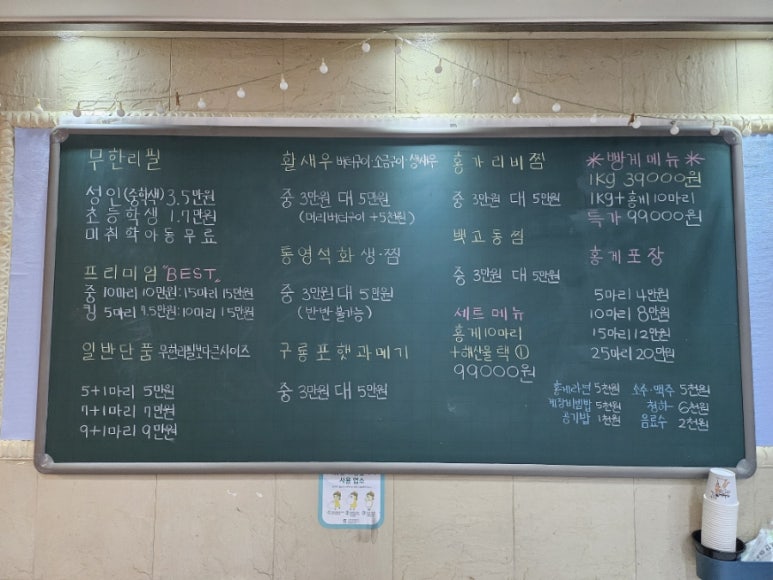 무한리필
성인(중학생) 3.5만원
초등학생 1.7만원
미취학아동무료
프리미엄 "BEST"
중 10마리 10만원:15마리 15만원
킹 5마리 9.5만원:10마리 15만원
일반단품 무한리필보다큰사이즈
5+1마리 5만원
7+1마리 7만원
9+1마리 9만원
활새우 버터구이·소금구이·생새우
중 3만원 대 5만원
(머리버터구이 +5천원)
통영석화 생·찜
중 3만원 대 5만원
(반반불가능)
구룡포햇과메기
중 3만원 대 5만원
홍가리비찜
중 3만원 대 5만원
백고동찜
중 3만원 대 5만원
세트메뉴
홍게10마리
+해산물 택 ①
99000원
*빵게메뉴*
1Kg 39000원
1Kg+홍게10마리
특가 99000원
홍게포장
5마리 4만원
10마리 8만원
15마리 12만원
25마리 20만원
홍게라면 5천원 소주·맥주 5천원
게장비빔밥 5천원 청하 6천원
공기밥 1천원 음료수 2천원
사용 업소